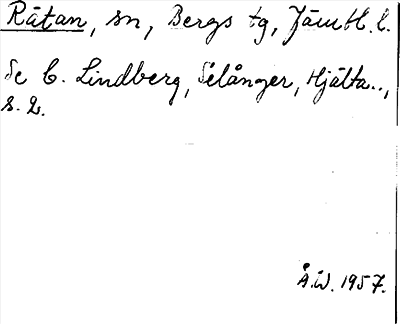 Rätan, sn, Bergs tg, Jämtl. l.
Se C. Lindberg, Selånger, Hjälta..,
s. 2.
Å.W. 1957.